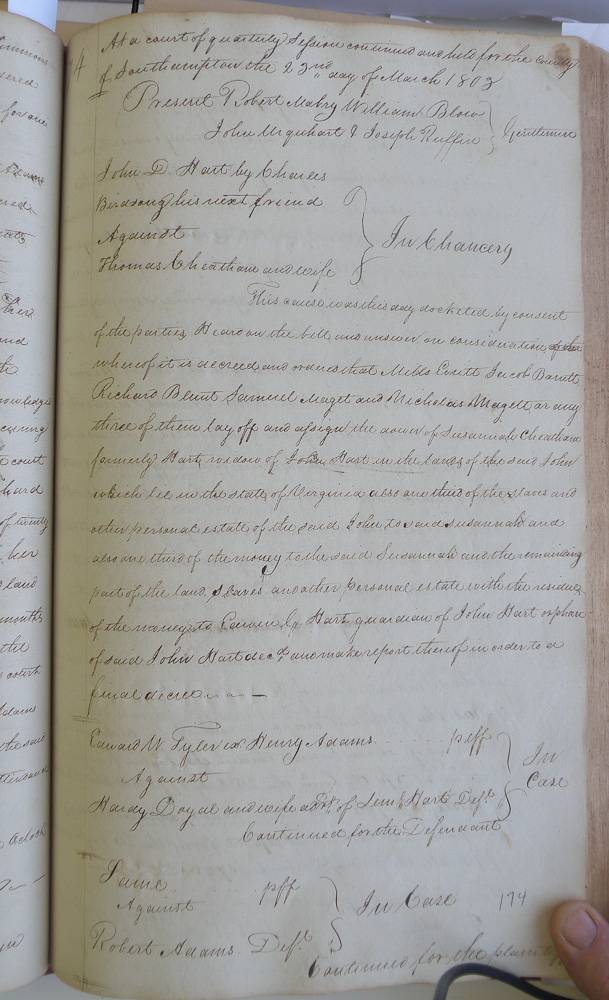 At a court of quarterly Session continued and held for the County
of Southampton the 22nd day of March 1803
Present Robert Mabry William Blow
John Urquhart & Joseph Ruffin Gentlemen
John D. Hart by Charles
Birdsong his next friend
Against
Thomas Cheatham and wife
In Chancery
This cause was this day docketed by consent
of the parties, Heard on the bill and answer on consideration
whereof it is decreed and ordered that Mills Jacob Barrett
Richard Blunt Samuel Maget and Nicholas Magett or any
three of them lay off and assign the dower of Susannah Cheatham
formerly Hart, widow of John Hart in the lands of the said John
which lie in the state of Virginia also one third of the slaves and
other personal estate of the said John to said Susannah and
also one third of the money to the said Susannah and the remaining
part of the land, slaves and other personal estate with the residue
of the money to Hart guardian of John Hart orphan
of said John Hart decd. and make report thereof in order to a
final decree
Edward W. Tyler ex Henry Adams pff
Against
Hardy Doyal and wife of Hart Deft.
In
Case
Continued for the Defendant
Same pff
Against
Robert Adams Deft.
In Case
174
Continued for the